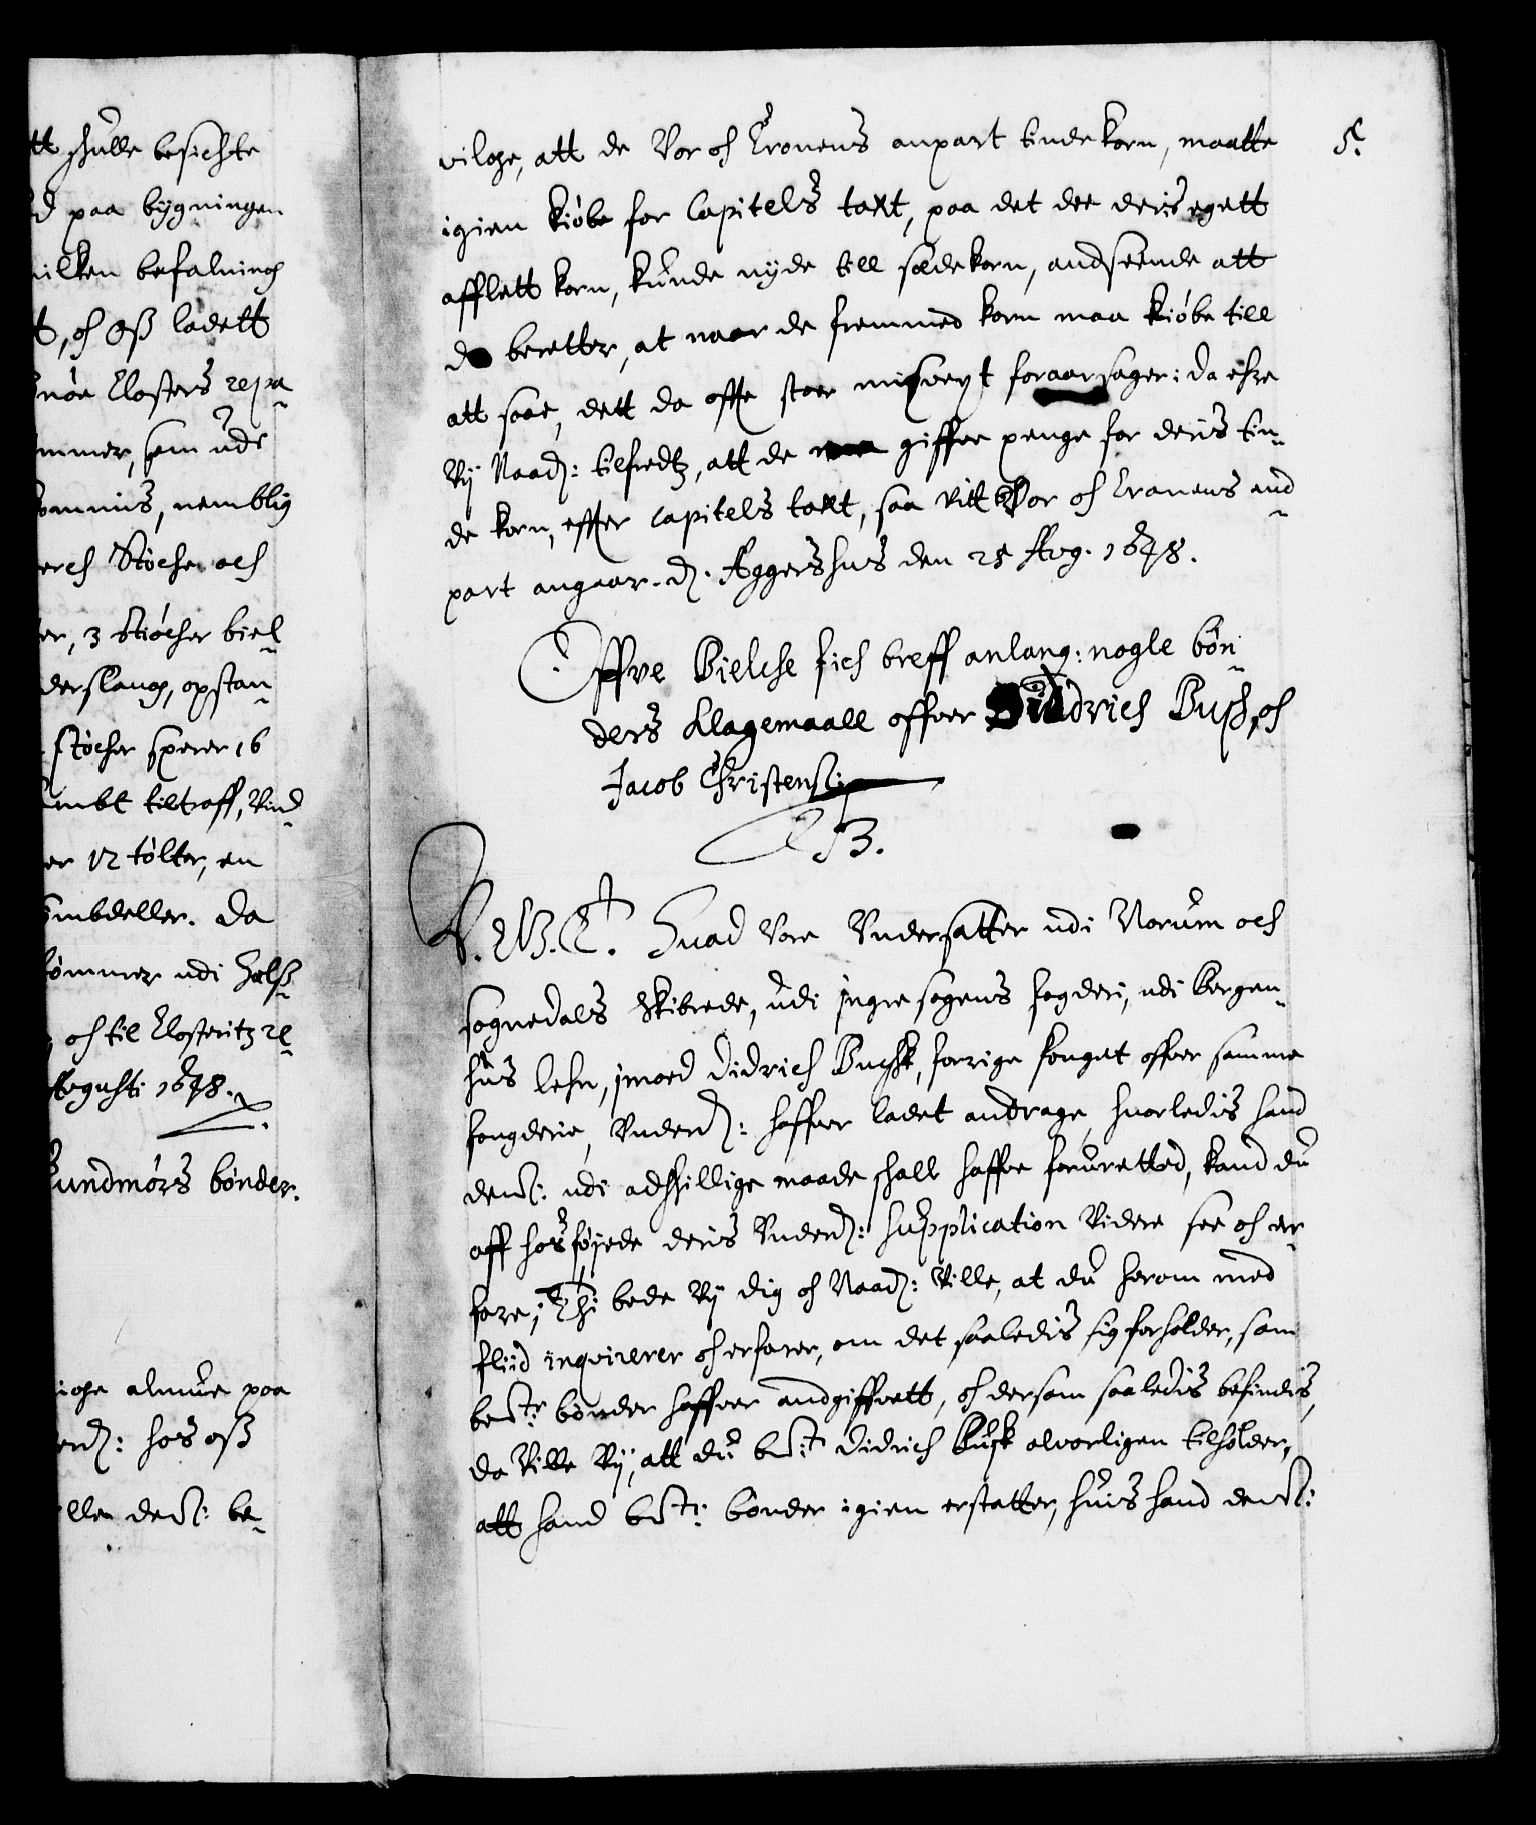 tt skulle besichte
d paa bygningen
uilken befalning
t, oc Oß ladett
nöe Closters repa
ommer, som udi
kommis, nemblig
erck Stöcker och
er, 3 Stöcker biel
derslaug, opstan
stöcker sperer, 16
ambt tiltraff, Vind
er 12 tölter, en
ombdeller. Da
tömmer udi Hols
, oc til Closteritz re
Augusti 1648.
Sundmörs bönder.
ige almue poa
erd: hos oß
lle denn: be
5.
vilge, att de Vor oc Cronens anpart tindekorn, maatte
igien kiöbe for Capitels taxt, paa det dee deris egett
afflett korn, kunde nyde till sædekorn, andseende att
de beretter, at naar de fremmed korn maa kiöbe till
att saae, dett da offte stoer misvext foraarsager: da ehre
Vij Naad: tilfredtz, att de giffve penge for deris tin
de korn, effter Capitels taxt, saa vitt Vor oc Cronens and
part angaar. D. Aggershus den 25 Aug. 1648.
Offve Bielche fich breff anlang: nogle bön
ders klagemaall offver Didrich Busch, oc
Jacob Christens:
C4.
V. G. T. Huad Vore Vndersatter udi Norum och
sognedals Skibrede, udi jngre sogens fogderi, udi bergen
huus lehn, jmod Didrich Buschk, forrige fouget offver samme
fougderie, Vnderd: haffver ladet andrage, huorledis hand
dennom: udi adskillige maade skall haffve foruretted, kand du
aff hosföjede deris Vnderd: supplication Videre see oc er
fare; Thi bede Vij dig oc Naad: Ville, at du herom med
fliid inqvirerer oc erfarer, om det saaledis sig forholder, som
bemte: bönder haffver andgiffvett, oc dersom saaledis befindis,
da Ville Vij, att du bemte: Didrich Busk alvorligen tilholder,
att hand bemte: bönder igien erstatter, huis hand denn: